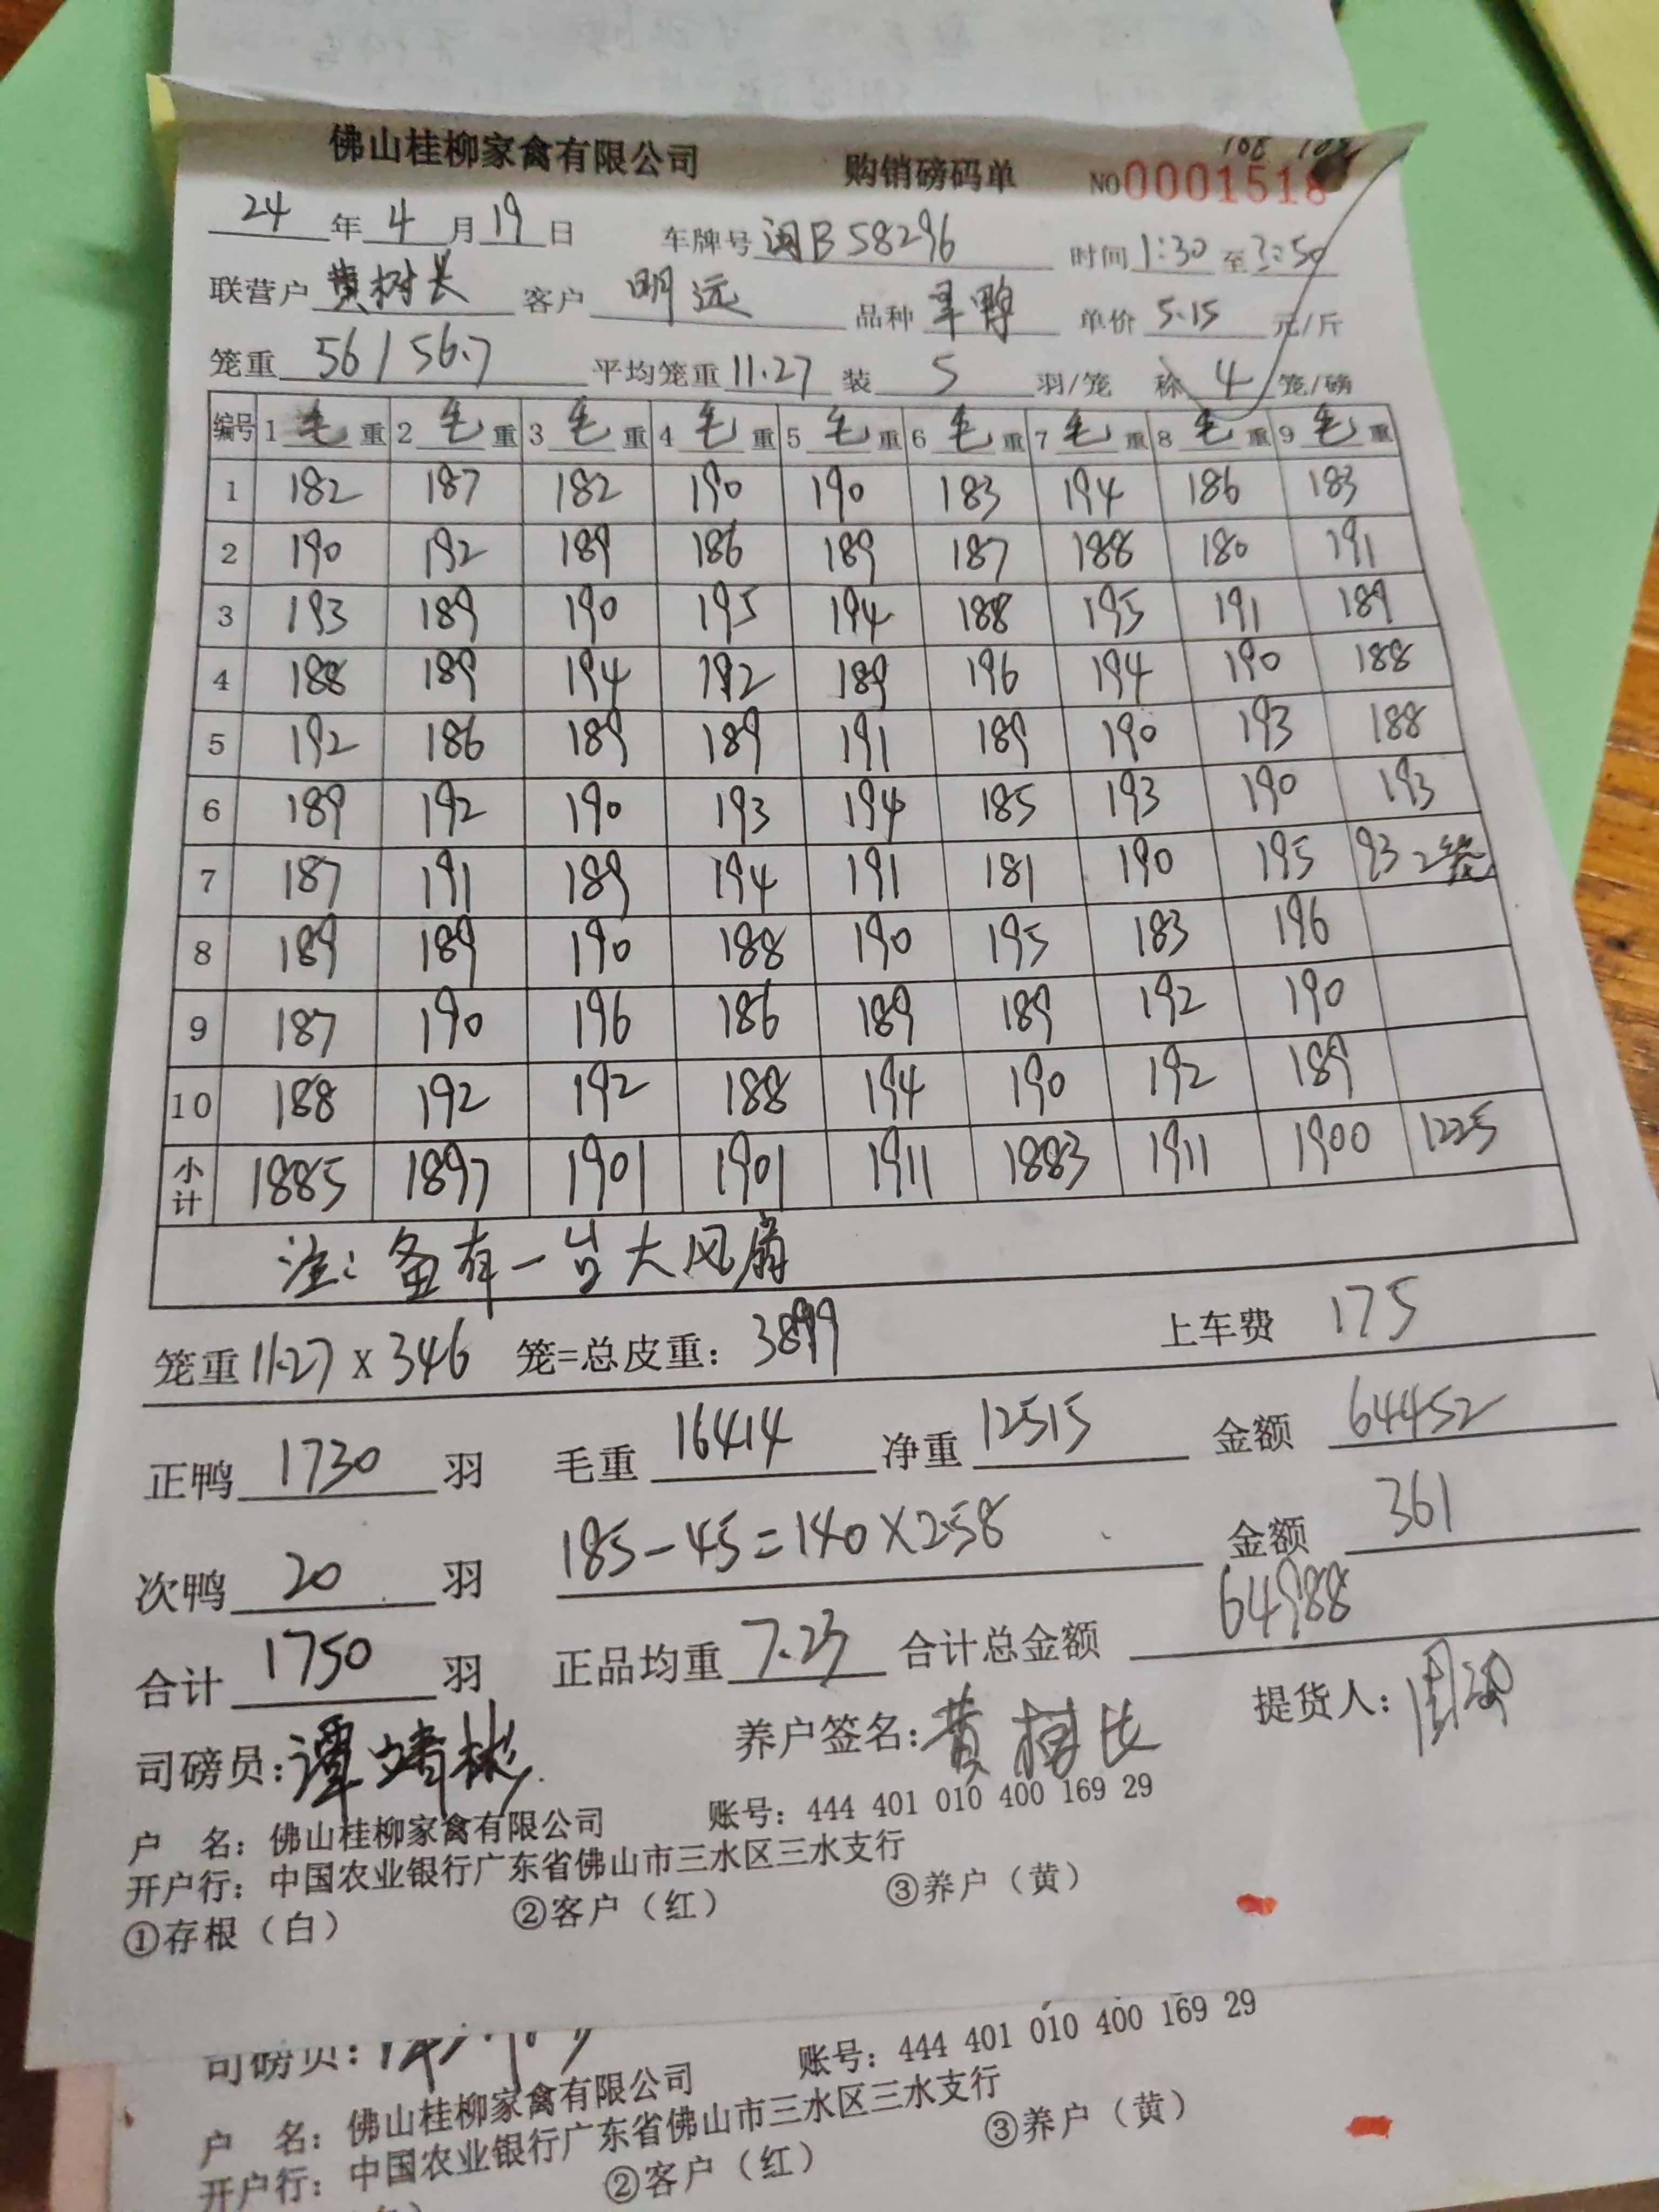 佛山桂柳家禽有限公司 购销磅码单 NO0001518
24年4月19日 车牌号闽B58296 时间1:30至3:50
联营户黄树长 客户明远 品种旱鸭 单价5.15元/斤
笼重56/56.7 平均笼重11.27装5羽/笼 称4笼/磅
编号 1毛重 2毛重 3毛重 4毛重 5毛重 6毛重 7毛重 8毛重 9毛重
1 182 187 182 190 190 183 194 186 183
2 190 192 189 186 189 187 188 180 191
3 193 189 190 195 194 188 195 191 189
4 188 189 194 192 189 196 194 190 188
5 192 186 189 189 191 189 190 193 188
6 189 192 190 193 194 185 193 190 193
7 187 191 189 194 191 181 190 195 93 2笼
8 189 189 190 188 190 195 183 196
9 187 190 196 186 189 189 192 190
10 188 192 192 188 194 190 192 189
小计 1885 1897 1901 1901 1911 1883 1911 1900 1225
注:备有一台大风扇
笼重11.27x346 笼=总皮重:3899 上车费 175
正鸭1730羽 毛重16414 净重12515 金额64452
次鸭20羽 185-45=140×2.58 金额361
合计1750羽 正品均重7.23 合计总金额64988
司磅员:谭靖彬 养户签名:黄树长 提货人:
户 名:佛山桂柳家禽有限公司 账号:444 401 010 400 169 29
开户行:中国农业银行广东省佛山市三水区三水支行
①存根(白) ②客户(红) ③养户(黄)
司磅员:
户 名:佛山桂柳家禽有限公司 账号:444 401 010 400 169 29
开户行:中国农业银行广东省佛山市三水区三水支行
②客户(红) ③养户(黄)